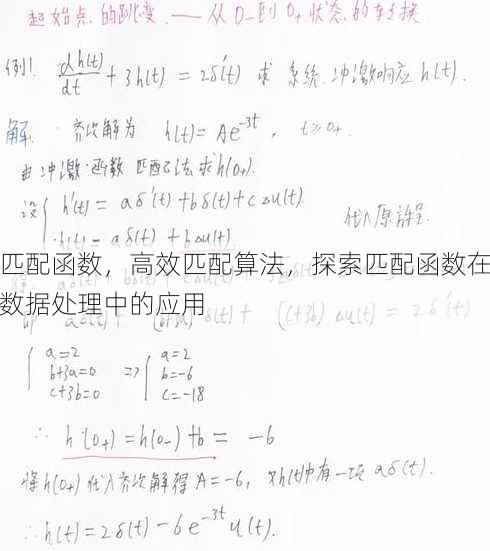 起始点的跳变 —— 从0-到0+状态的转换
例1. dh(t)/dt + 3h(t) = 2δ'(t) 求系统冲激响应 h(t).
解. 齐次解为 h(t) = Ae^{-3t}, t≥0+.
由冲激函数匹配法求h(0+).
设{ h'(t) = aδ'(t)+bδ(t)+cΔu(t)
h(t) = aδ(t)+bΔu(t). 代入原方程.
匹配函数，高效匹配算法，探索匹配函数在
数据处理中的应用
(b+3a)δ(t) + (c+3b)Δu(t) = 2δ'(t)
{ a=2 => { a=2
b+3a=0 b=-6
c+3b=0 c=-18
∴ h(0+) = h(0-)+b = -6
将h(0+)代入齐次解得 A=-6, 又h(t)中有一项 aδ(t).
∴ h(t) = 2δ(t) - 6e^{-3t}u(t).